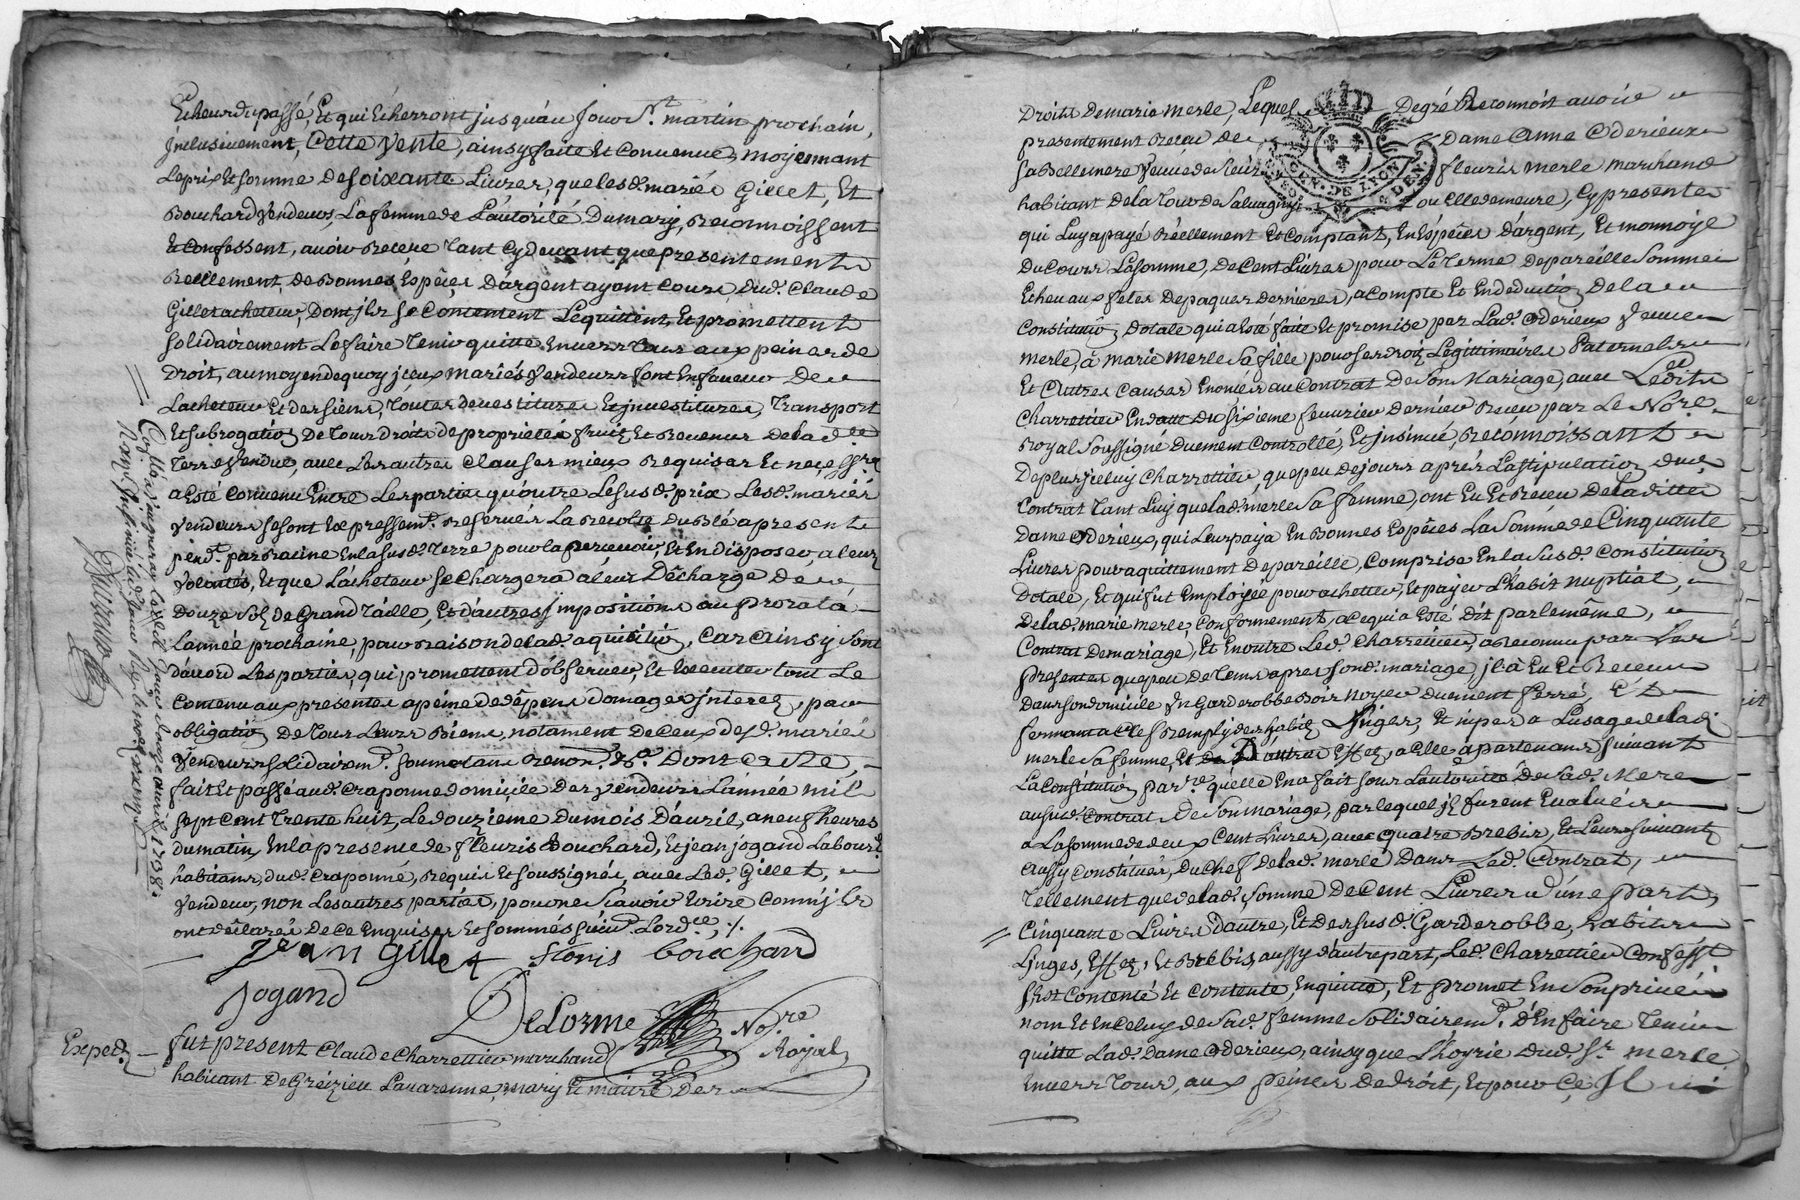 Echeus du passé, Et qui Echerront jusquau jour St. martin prochain,
jnclusivement, Cette vente, ainsy faite Et convenue, moyennant
Le prix Et somme de soixante Livres, que lesd. mariés Gillet, Et
Bouchard vendeurs, La femme de L'autorité Du mary, Reconnoissent
Et Confessent, avoir Receue tant Cy devant que presentement
Reellement, de Bonnes Espêces D'argent ayant cours dud. Claude
Gillet acheteur, Dont jls se Contentent Lequittent, Et promettent
solidairement Le faire tenir quitte Envers tous aux peines de
Droit, au moyen de quoy jceux mariés vendeurs font En faveur De
L'acheteur Et des siens, toutes devestitures Et jnvestitures, transport
Et subrogation De tous droits de proprieté fruits Et Revenus de lad.
terre vendue, avec Les autres clauses mieux Requises Et necess.res
a Esté convenu Entre Les parties qu'outre Le susd. prix Lesd. mariés
vendeurs se sont Expressem.t Reservés La Recolte du Blé a present
pend.t par Racine En la susd. terre pour la percevoir, Et En disposer a leurs
volontés, Et que L'acheteur se chargera a leur Décharge de
Douze sols de Grand taille, Et d'autres jmpositions au prorata
L'année prochaine, pour raison de lad. aquisition, car ainsy sont
d'acord Les parties, qui promettent d'observer, Et Executer tout Le
Contenu aux presentes a peine de dépens domages jnterets, par
obligation De tous Leurs Biens, notament De Ceux desd. mariés
vendeurs solidairem.t soumettant Renon.t &c.a Dont acte,
fait Et passé aud. craponne domicile Des vendeurs L'année mil
sept Cent trente huit, Le douzieme du mois D'avril, a neuf heures
du matin, En la presence de fleuris Bouchard, Et jean jogand Labour.s
habitans dud. craponne, Requis Et soussignés, avec Led. Gillet,
vendeur, non Les autres parties, pour ne sçavoir Ecrire comm'jls
ont déclaré de ce Enquises Et sommés suiv.t Lord.ce ./.
Jean Gillet floris bouchard
Jogand
DeLorme No.re
Royal
Exped.
fut present Claude Charrettier marchand
habitant De Grézieu Lavarenne, mary Et maitre Des
Droits De marie merle, Lequel De gré Reconnoit avoir
presentement Receu de Dame Anne Oderieux
sa Bellemere veuve de sieur fleuris merle marchand
habitant de la tour de Salvagny ou Elle demeure, Cy presente
GEN. DE LYON
DEN.
qui Luy a payé Réellement Et comptant, En Espêces D'argent, Et monnoye
Du Cours La somme, de Cent Livres pour Le terme de pareille somme
Echeu aux fetes de paques dernieres, a compte Et En deduction de la
Constitution dotale qui a Esté faite Et promise par Lad. Oderieux veuve
merle, a marie merle sa fille pour ses droits Légittimaires Paternels
Et Autres causes Enoncées au Contrat De son Mariage, avec Ledit
Charrettier En datte du sixieme fevrier dernier Receu par Le No.re
Royal soussigné Duement Controllé, Et jnsinué, Reconnoissant
De plus jceluy Charrettier, que peu de jours aprés La stipulation dud.
Contrat tant Luy que lad. merle sa femme, ont Eu Et Receu de laditte
Dame Oderieux, qui Leur paya En Bonnes Espêces La somme de Cinquante
Livres pour aquittement de pareille, Comprise En la susd. Constitution
Dotale, Et qui fut Employée pour achetter, Et payer L'habit nuptial,
de lad. marie merle, Conformement, a ce qui a Esté dit par le même,
Contrat De mariage, Et En outre Led. Charrettier, a Reconnu par Les
presentes que peu de tems apres sond. mariage, jl a Eu Et Receu
Dans son domicille un Garderobbe Bois Noyer duement ferré,
fermant a Clef Remply des habits Linges, Et nipes a L'usage de lad.
merle sa femme, Et D'autres Effets, a Elle apartenans suivant
La Constitution par.re qu'elle En a fait sous L'autorité de sad. Mere
au susd. Contrat De son mariage, par lequel jls furent Evalués
a La somme de deux Cent Livres, avec quatre Brebis, Et Leurs suivants
aussy Constitués, Du chef de lad. merle Dans Led. Contrat,
tellement que de lad. somme De Cent Livres d'une part,
Cinquante Livres d'autre, Et des susd. Garderobbe, habits
Linges, Effets, Et Brebis, aussy d'autre part, Led. Charrettier Confesse
s'est Contenté Et Contente, En quitte, Et promet En son privé
nom Et En Celuy de sad. femme solidairem.t D'En faire tenir
quitte Lad. Dame Oderieux, ainsy que L'hoyrie dud. Sr. merle
Envers tous, aux peines de droit, Et pour Ce Jl